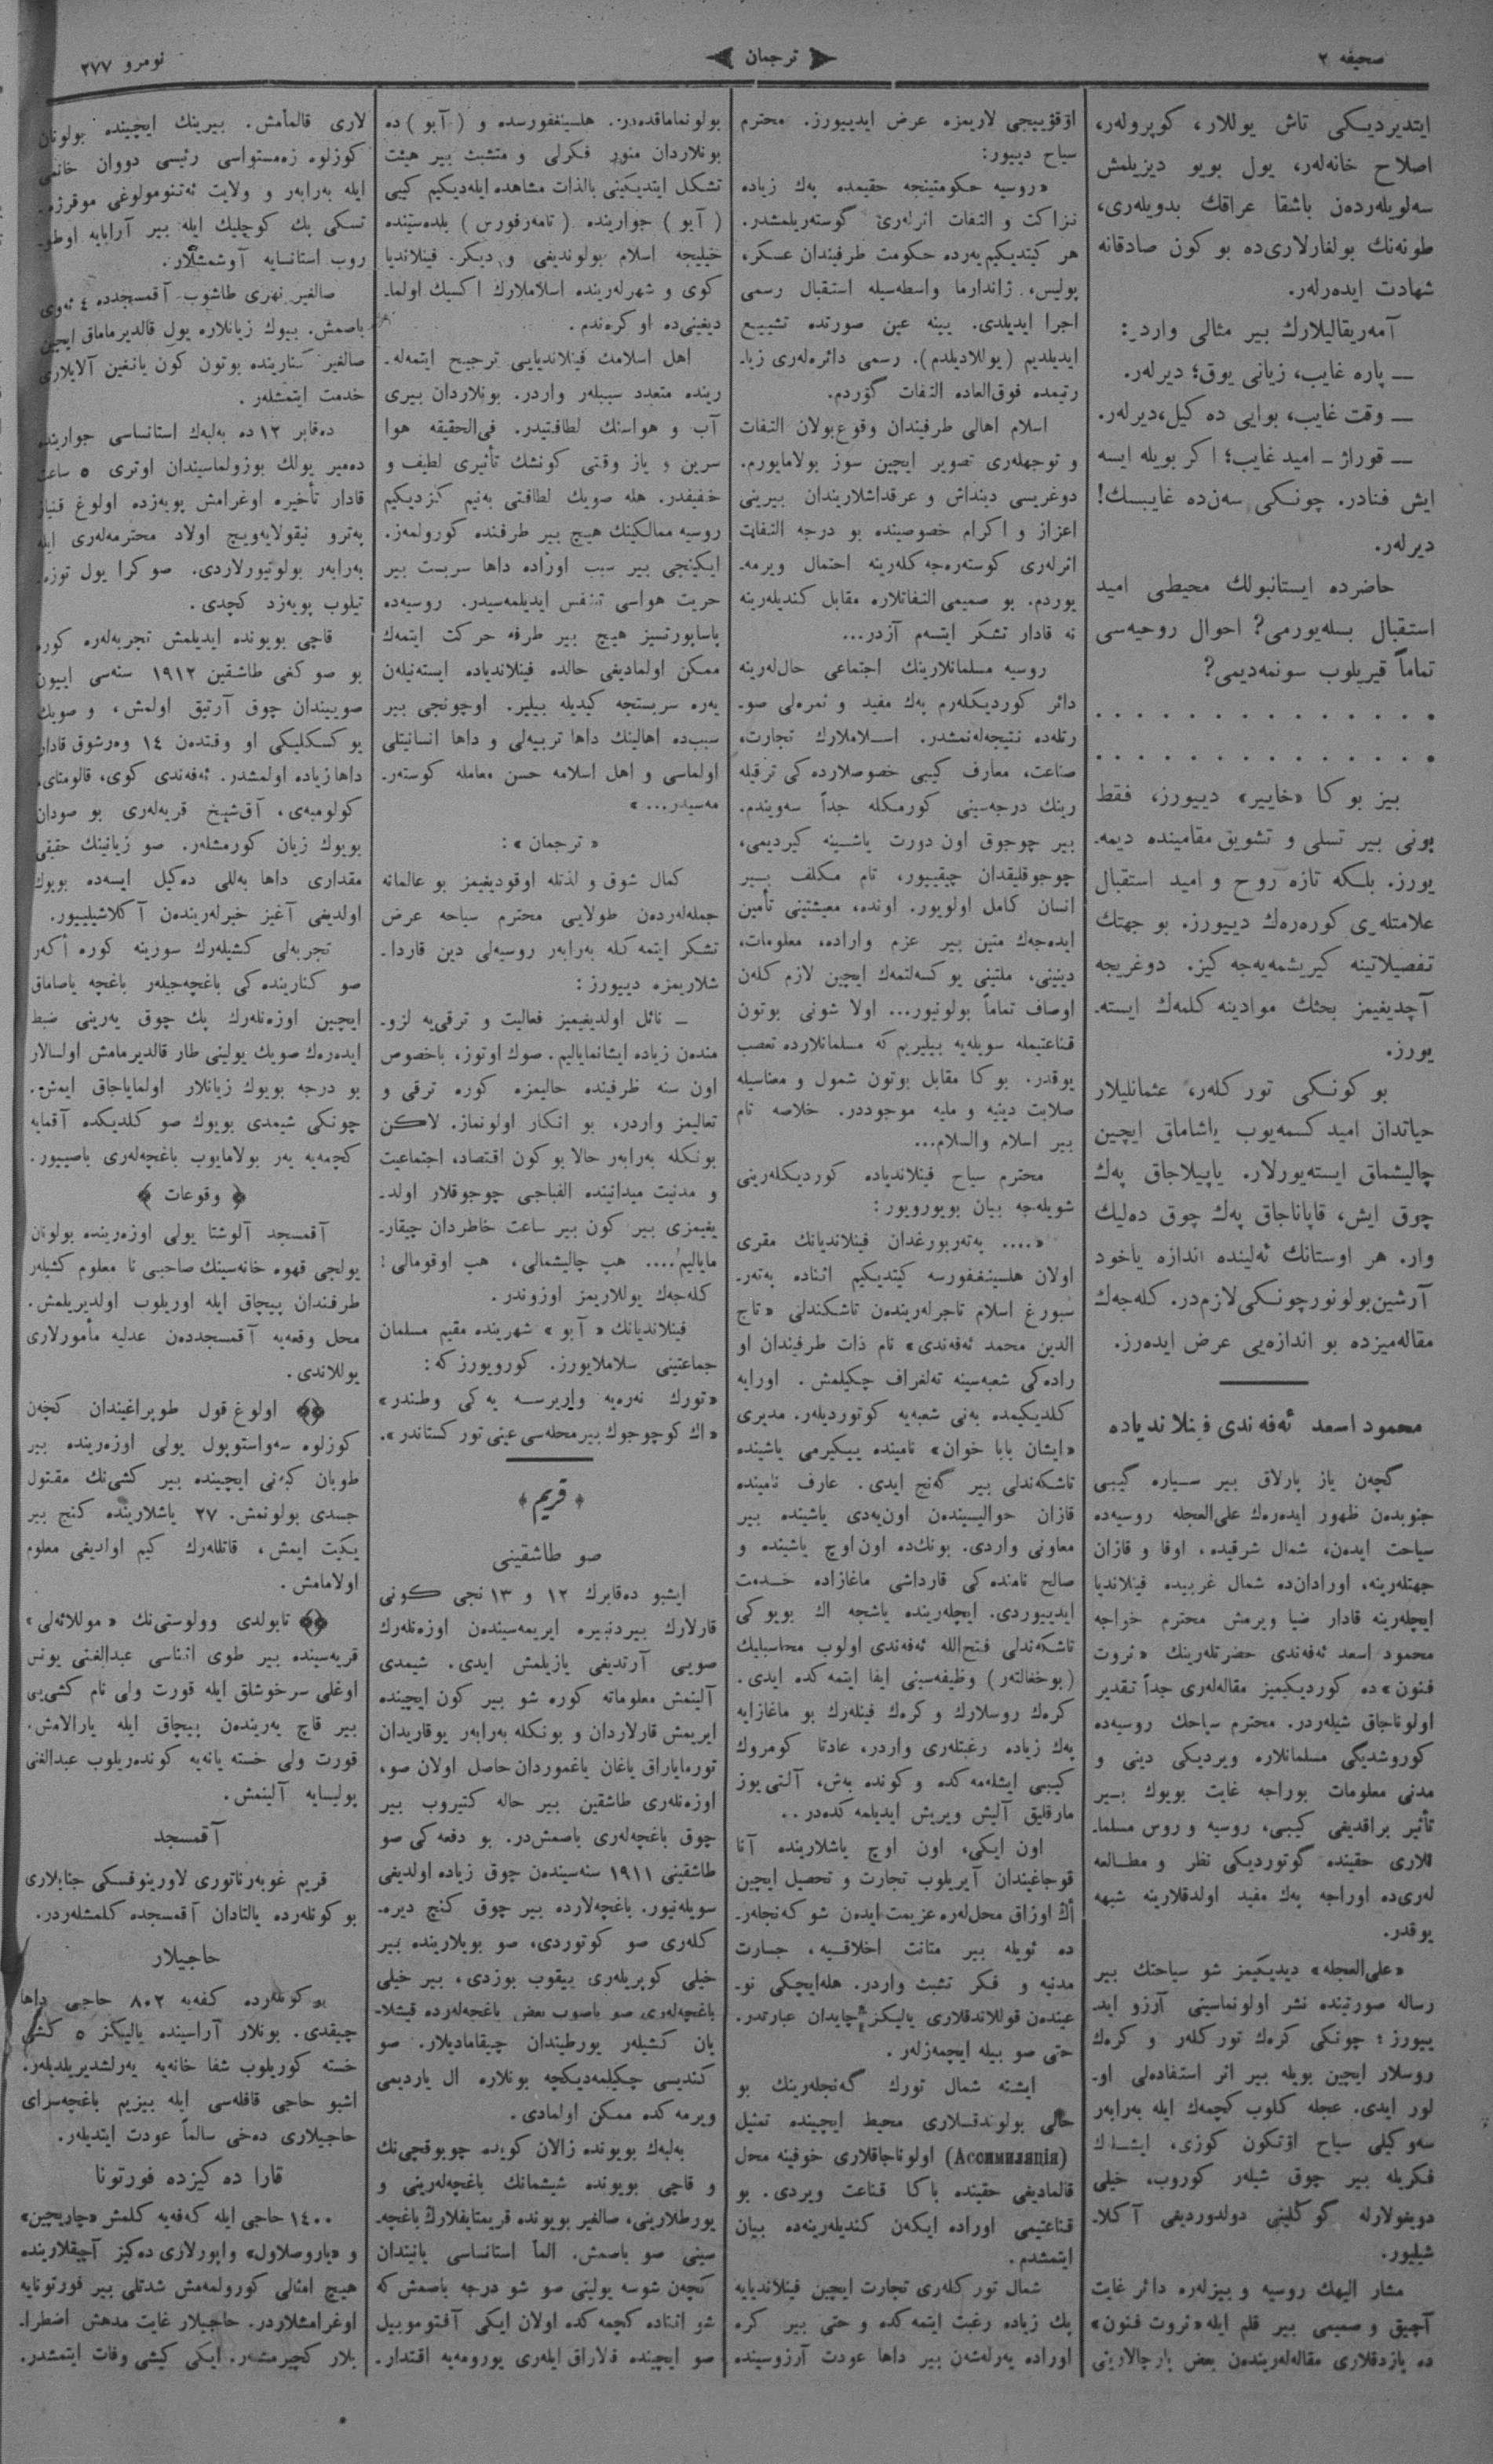 صحیفه ۲
ترجمان
نومرو ۲۷۷
ایتدیردیكی تاش یوللار، كوپرولەر،
اصلاح خانەلەر، یول بویو دیزیلمش
سەلویلەردەن باشقا عراقك بدویلەری،
طونەنك بولغارلاریده بو كون صادقانه
شهادت ایدەرلەر.
آمەریقالیلارك بیر مثالی واردر:
— پاره غایب، زیانی یوق؛ دیرلەر.
— وقت غایب، بوایی ده كیل،دیرلەر.
— قوراژ ـ امید غایب؛ اكر بویله ایسه
ایش فنادر. چونكی سەنده غایبسك!
دیرلەر.
حاضرده ایستانبولك محیطی امید
استقبال بسلەیورمی؟ احوال روحیەسی
تماماً قیریلوب سونمەدیمی؟
. . . . . . . . . . . . . .
. . . . . . . . . . . . . .
بیز بو كا «خاییر» دییورز، فقط
بونی بیر تسلی و تشویق مقامینده دیمەـ
یورز. بلكه تازه روح و امید استقبال
علامتلەری كورەرەك دییورز. بو جهتك
تفصیلاتینه كیریشمەیەجەكیز. دوغریجه
آچدیغیمز بحثك موادینه كلمەك ایستەـ
یورز.
بو كونكی تورکلەر، عثمانلیلار
حیاتدان امید كسمەیوب یاشاماق ایچین
چالیشماق ایستەیورلار. یاپیلاجاق پەك
چوق ایش، قاپاناجاق پەك چوق دەلیك
وار. هر اوستانك ئەلینده اندازه یاخود
آرشین بولونور چونكی لازم در. كلەجەك
مقالەمیزده بو اندازەیی عرض ایدەرز.
محمود اسعد ئەفەندی فینلاندیاده
گچەن یاز پارلاق بیر سیاره گیبی
جنوبدەن ظهور ایدەرەك علی‌العجله روسیەده
سیاحت ایدەن، شمال شرقیده، اوفا و قازان
جهتلەرینه، اورادان‌ده شمال غربیده فینلاندیا
ایچلەرینه قادار ضیا ویرمش محترم خواجه
محمود اسعد ئەفەندی حضرتلەرینك «ثروت
فنون»ده كوردیكیمیز مقالەلەری جداً تقدیر
اولوناجاق شیلەردر. محترم سیاحك روسیەده
كوروشدیگی مسلمانلاره ویردیكی دینی و
مدنی معلومات بوراجه غایت بویوك بیر
تأثیر براقدیغی كیبی، روسیه و روس مسلماـ
نلاری حقینده گوتوردیكی نظر و مطالعه
لەری‌ده اوراجه پەك مفید اولدقلارینه شبهه
یوقدر.
«علی‌العجله» دیدیكیمز شو سیاحتك بیر
رساله صورتینده نشر اولونماسینی آرزو ایدـ
ییورز؛ چونكی كرەك توركلەر و كرەك
روسلار ایچین بویله بیر اثر استفادەلی اوـ
لور ایدی. عجله كلوب كچمەك ایله بەرابەر
سەوكیلی سیاح اوتكون كوزی، ایشلك
فكریله بیر چوق شیلەر كوروب، خیلی
دویغولارله گوكلینی دولدوردیغی آكلاـ
شیلیور.
مشار الیهك روسیه و بیزلەره دائر غایت
آچیق و صمیمی بیر قلم ایله «ثروت فنون»
ده یازدقلاری مقالەلەریندەن بعض پارچالارینی
اوقوییجی لاریمزه عرض ایدییورز. محترم
سیاح دییور:
«روسیه حكومتینجه حقیمده پەك زیاده
نزاكت و التفات اثرلەری گوستەریلمشدر.
هر كیتدیكیم یەرده حكومت طرفیندان عسكر،
پولیس، ژاندارما واسطەسیله استقبال رسمی
اجرا ایدیلدی. یینه عین صورتده تشییع
ایدیلدیم (یوللادیلدم). رسمی دائرەلەری زیاـ
رتیمده فوق‌العاده التفات گوردم.
اسلام اهالی طرفیندان وقوع‌بولان التفات
و توجهلەری تصویر ایچین سوز بولامایورم.
دوغریسی دینداش و عرقداشلاریندان بیرینی
اعزاز و اكرام خصوصینده بو درجه التفات
اثرلەری كوستەرەجەكلەرینه احتمال ویرمەـ
یوردم. بو صمیمی التفاتلاره مقابل كندیلەرینه
نه قادار تشكر ایتسەم آزدر...
روسیه مسلمانلارینك اجتماعی حال‌لەرینه
دائر كوردیكلەرم پەك مفید و ثمرەلی صوـ
رتلەده نتیجەلەنمشدر. اسلاملارك تجارت،
صناعت، معارف كیبی خصوصلاردەكی ترقیلە
رینك درجەسینی كورمكله جداً سەویندم.
بیر چوجوق اون دورت یاشینه كیردیمی،
چوجوقلیقدان چیقییور، تام مكلف بیر
انسان كامل اولویور. اونده، معیشتینی تأمین
ایدەجەك متین بیر عزم واراده، معلومات،
دینینی، ملتینی یوكسەلتمەك ایچین لازم كلەن
اوصاف تماماً بولونیور... اولا شونی بوتون
قناعتیمله سویلەیه بیلیریم كه مسلمانلارده تعصب
یوقدر. بوكا مقابل بوتون شمول و معناسیله
صلابت دینیه و ملیه موجوددر. خلاصه تام
بیر اسلام والسلام...
محترم سیاح فینلاندیاده كوردیكلەرینی
شویلەجه بیان بویورویور:
«.... پەتەربورغدان فینلاندیانك مقری
اولان هلسینغفورسه كیتدیكیم اثناده پەتەرـ
سبورغ اسلام تاجرلەریندەن تاشكندلی «تاج
الدین محمد ئەفەندی» نام ذات طرفیندان او
رادەكی شعبەسینه تەلغراف چكیلمش. اورایه
كلدیكیمده بەنی شعبەیه كوتوردیلەر. مدیری
«ایشان بابا خوان» نامینده ییكیرمی یاشینده
تاشكەندلی بیر گەنج ایدی. عارف نامینده
قازان حوالیسیندەن اون‌یەدی یاشینده بیر
معاونی واردی. بونك‌ده اون‌اوچ یاشینده و
صالح نامنده كی قارداشی ماغازاده خدمت
ایدییوردی. ایچلەرینده یاشجه اك بویوكی
تاشكەندلی فتح‌الله ئەفەندی اولوب محاسبلیك
(بوخغالتەر) وظیفەسینی ایفا ایتمەكده ایدی.
كرەك روسلارك و كرەك فینلەرك بو ماغازایه
پەك زیاده رغبتلەری واردر، عادتا كومروك
كیبی ایشلەمەكده و كونده بەش، آلتی یوز
مارقلیق آلیش ویریش ایدیلمەكدەدر..
اون ایكی، اون اوچ یاشلارینده آنا
قوجاغیندان آیریلوب تجارت و تحصیل ایچین
اڭ اوزاق محل‌لەره عزیمت ایدەن شو كەنجلەرـ
ده ئویله بیر متانت اخلاقیه، جسارت
مدنیه و فكر تشبث واردر. هله‌ایچكی نوـ
عیندەن قوللاندقلاری یالیكز چایدان عبارتدر.
حتی صو بیله ایچمەزلەر.
ایشته شمال تورك گەنجلەرینك بو
حالی بولوندقلاری محیط ایچینده تمثیل
(Ассимиляція) اولوناجاقلاری خوفینه محل
قالمادیغی حقینده باكا قناعت ویردی. بو
قناعتیمی اوراده ایكەن كندیلەرینەده بیان
ایتمشدم.
شمال توركلەری تجارت ایچین فینلاندیایه
پك زیاده رغبت ایتمەكده و حتی بیر كره
اوراده یەرلەشەن بیر داها عودت آرزوسینده
بولونماماقدەدر. هلسینغفورسده و (آبو)ده
بونلاردان منور فكرلی و متشبث بیر هیئت
تشكل ایتدیكینی بالذات مشاهده ایلەدیكیم كیبی
(آبو) جوارینده (تامەرفورس) بلدەسینده
خیلیجه اسلام بولوندیغی و دیكر فینلاندیا
كوی و شهرلەرینده اسلاملارك اكسیك اولماـ
دیغینی‌ده اوكرەندم.
اهل اسلامك فینلاندیایی ترجیح ایتمەلەـ
رینده متعدد سببلەر واردر. بونلاردان بیری
آب و هواسنك لطافتیدر. فی‌الحقیقه هوا
سرین و یاز وقتی كونشك تأثیری لطیف و
خفیفدر. هله صویك لطافتی بەنیم كزدیكیم
روسیه ممالكینك هیچ بیر طرفنده كورولمەز.
ایكینجی بیر سبب اوراده داها سربست بیر
حریت هواسی تنفس ایدیلمەسیدر. روسیەده
پاساپورتسیز هیچ بیر طرفه حركت ایتمەك
ممكن اولمادیغی حالده فینلاندیاده ایستەنیلەن
یەره سربستجه كیدیله بیلیر. اوچونجی بیر
سبب‌ده اهالینك داها تربیەلی و داها انسانیتلی
اولماسی و اهل اسلامه حسن معامله كوستەرـ
مەسیدر...»
«ترجمان»:
كمال شوق و لذتله اوقودیغیمز بو عالمانه
جملەلەردەن طولایی محترم سیاحه عرض
تشكر ایتمەكله بەرابەر روسیەلی دین قارداـ
شلاریمزه دییورز:
— نائل اولدیغیمیز فعالیت و ترقی‌یه لزوـ
مندەن زیاده ایشانمایالیم. صوك اوتوز، باخصوص
اون سنه ظرفینده حالیمزه كوره ترقی و
تعالیمز واردر، بو انكار اولونماز. لاكن
بونكله بەرابەر حالا بو كون اقتصاد، اجتماعیت
و مدنیت میدانینده الفباجی چوجوقلار اولدـ
یغیمزی بیر كون بیر ساعت خاطردان چیقارـ
مایالیم.... هپ چالیشمالی، هپ اوقومالی!
كلەجەك یوللاریمز اوزوندر.
فینلاندیانك «آبو» شهرینده مقیم مسلمان
جماعتینی سلاملایورز. كورویورز كه:
«تورك نەرەیه واریرسه یەكی وطندر»
«اك كوچوجوك بیر محلەسی عینی توركستاندر».
قریم
صو طاشقینی
ایشبو دەقابرك ۱۲ و ۱۳ نجی كونی
قارلارك بیردنبیره ایریمەسیندەن اوزەنلەرك
صویی آرتدیغی یازیلمش ایدی. شیمدی
آلینمش معلوماته كوره شو بیر كون ایچینده
ایریمش قارلاردان و بونكله بەرابەر یوقاریدان
تورمایاراق یاغان یاغموردان حاصل اولان صو،
اوزەنلەری طاشقین بیر حاله كتیروب بیر
چوق باغچەلەری باصمش‌در. بو دفعەكی صو
طاشقینی ۱۹۱۱ سنەسیندەن چوق زیاده اولدیغی
سویلەنیور. باغچەلارده بیر چوق كنج دیرەـ
كلەری صو كوتوردی، صو بویلارینده بیر
خیلی كوپریلەری ییقوب بوزدی، بیر خیلی
باغچەلەری صو باصوب بعض باغچەلەرده قیشلاـ
یان كشیلەر یورطیندان چیقامادیلار. صو
كندیسی چكیلمەدیكچه بونلاره ال یاردیمی
ویرمەكده ممكن اولمادی.
بەلبەك بویونده زالان كویده چوبوقچی‌نك
و قاچی بویونده شیشمانك باغچەلەرینی و
یورطلارینی، صالغیر بویونده قریمتایفلارڭ باغچەـ
سینی صو باصمش. الما استانساسی یانیندان
كچەن شوسه یولینی صو شو درجه باصمش كه
شو اثناده كچمەكده اولان ایكی آفتوموبیل
صو ایچینده قالاراق ایلەری یورومەیه اقتدارـ
لاری قالمامش. بیرینك ایچینده بولونان
كوزلوه زەمستواسی رئیسی دووان خانمی
ایله بەرابەر و ولایت ئەتنومولوغی موقرژەـ
تسكی پك كوچلیك ایله بیر آرابایه اوطوـ
روب استانسایه آوشمشلار.
صالغیر نهری طاشوب آقمسجدده ٤ ئەوی
باصمش. بیوك زیانلاره یول قالدیرماماق ایچین
صالغیر كنارینده بوتون كون یانغین آلایلاری
خدمت ایتمشلەر.
دەقابر ۱۲ ده بەلبەك استانساسی جوارینده
دەمیر یولك بوزولماسیندان اوتری ٥ ساعت
قادار تأخیره اوغرامش پویەزده اولوغ قنیاز
پەترو نیقولایەویچ اولاد محترمەلەری ایله
بەرابەر بولونیورلاردی. صوكرا یول توزەـ
تیلوب پویەزد كچدی.
قاچی بویونده ایدیلمش تجربەلەره كوره
بو صوكغی طاشقین ۱۹۱۲ سنەسی اییون
صوییندان چوق آرتیق اولمش، و صویك
یوكسكلیكی او وقتدەن ۱٤ وەرشوق قادار
داها زیاده اولمشدر. ئەفەندی كوی، قالومتای،
كولومبەی، آق‌شیخ قریەلەری بو صودان
بویوك زیان كورمشلەر. صو زیانینك حقیقی
مقداری داها بەللی دەكیل ایسەده بویوك
اولدیغی آغیز خبرلەریندەن آكلاشیلییور.
تجربەلی كشیلەرك سوزینه كوره أكەر
صو كنارینده كی باغچەجیلەر باغچه یاصاماق
ایچین اوزەنلەرك پك چوق یەرینی ضبط
ایدەرەك صویك یولینی طار قالدیرمامش اولسالار
بو درجه بویوك زیانلار اولمایاجاق ایمش.
چونكی شیمدی بویوك صو كلدیكده آقمایه
كچمەیه یەر بولامایوب باغچەلەری باصییور.
﴿ وقوعات ﴾
آقمسجد آلوشتا یولی اوزەرینده بولونان
یولجی قهوه خانەسینك صاحبی نا معلوم كشیلەر
طرفندان پیچاق ایله اوریلوب اولدیریلمش.
محل وقعەیه آقمسجددەن عدلیه مأمورلاری
یوللاندی.
اولوغ قول طوپراغیندان كچەن
كوزلوه سەواستوپول یولی اوزەرینده بیر
طوبان ایچینده بیر كشی‌نك مقتول
جسدی بولونمش. ۲۷ یاشلارینده كنج بیر
یكیت ایمش، قاتللەرك كیم اولدیغی معلوم
اولمامش.
تابولدی وولوستی‌نك «موللاٸەلی»
قریەسینده بیر طوی اثناسی عبدالغنی یونس
اوغلی سرخوشلق ایله قورت ولی نام كشی‌یی
بیر قاچ یەریندەن پیچاق ایله یارالامش.
قورت ولی خسته یانەیه كوندەریلوب عبدالغنی
پولیسایه آلینمش.
آقمسجد
قریم غوبەرناتوری لاورینوفسكی جنابلاری
بو كونلەرده یالتادان آقمسجده كلمشلەردر.
حاجیلار
بو كونلەرده كفەیه ۸۰۲ حاجی داها
چیقدی. بونلار آراسینده یالیكز ٥ كشی
خسته كوریلوب شفا خانەیه یەرلشدیریلدیلەر.
اشبو حاجی قافلەسی ایله بیزیم باغچەسرای
حاجیلاری دەخی سالماً عودت ایتدیلەر.
قارا دەكیزده فورتونا
۱٤۰۰ حاجی ایله كەفەیه كلمش «چاریچین»
و «یاروصلاول» واپورلاری دەكیز آچیقلارینده
هیچ امثالی كورولمەمش شدتلی بیر فورتونایه
اوغرامشلاردر. حاجیلار غایت مدهش اضطراـ
بلار كچیرمشلەر. ایكی كیشی وفات ایتمشدر.